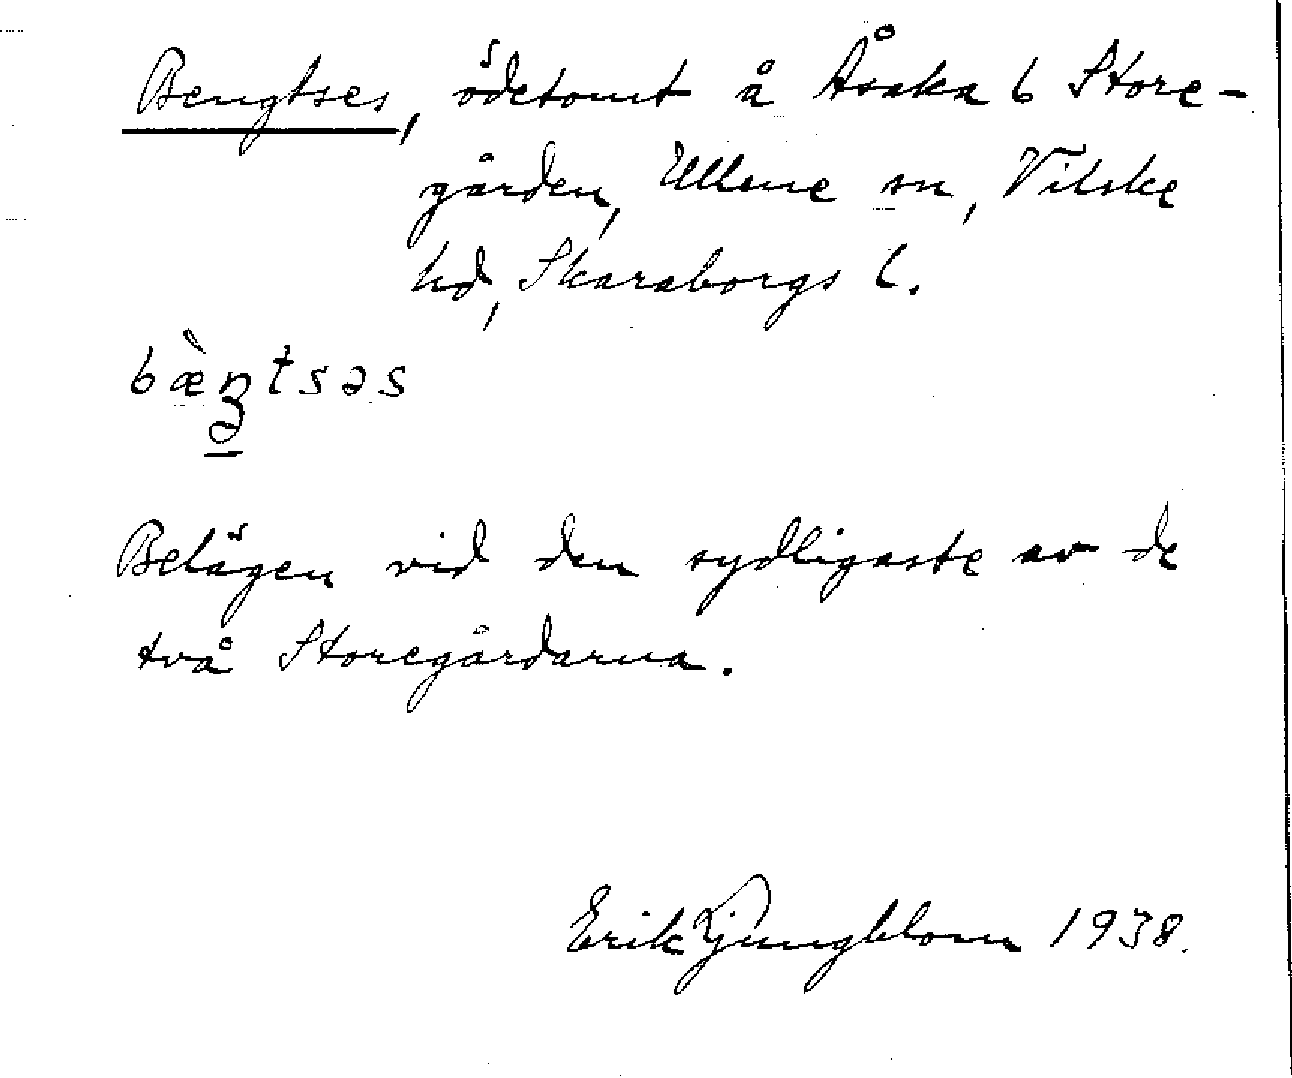 Bengtses, ödetomt å Åsaka 6 Store-
gården, Ullene sn, Vilske
hd, Skaraborgs l.
bæ̀ŋtsəs
Belägen vid den sydligaste av de
två Storegårdarna.
Erik Ljungblom 1938.